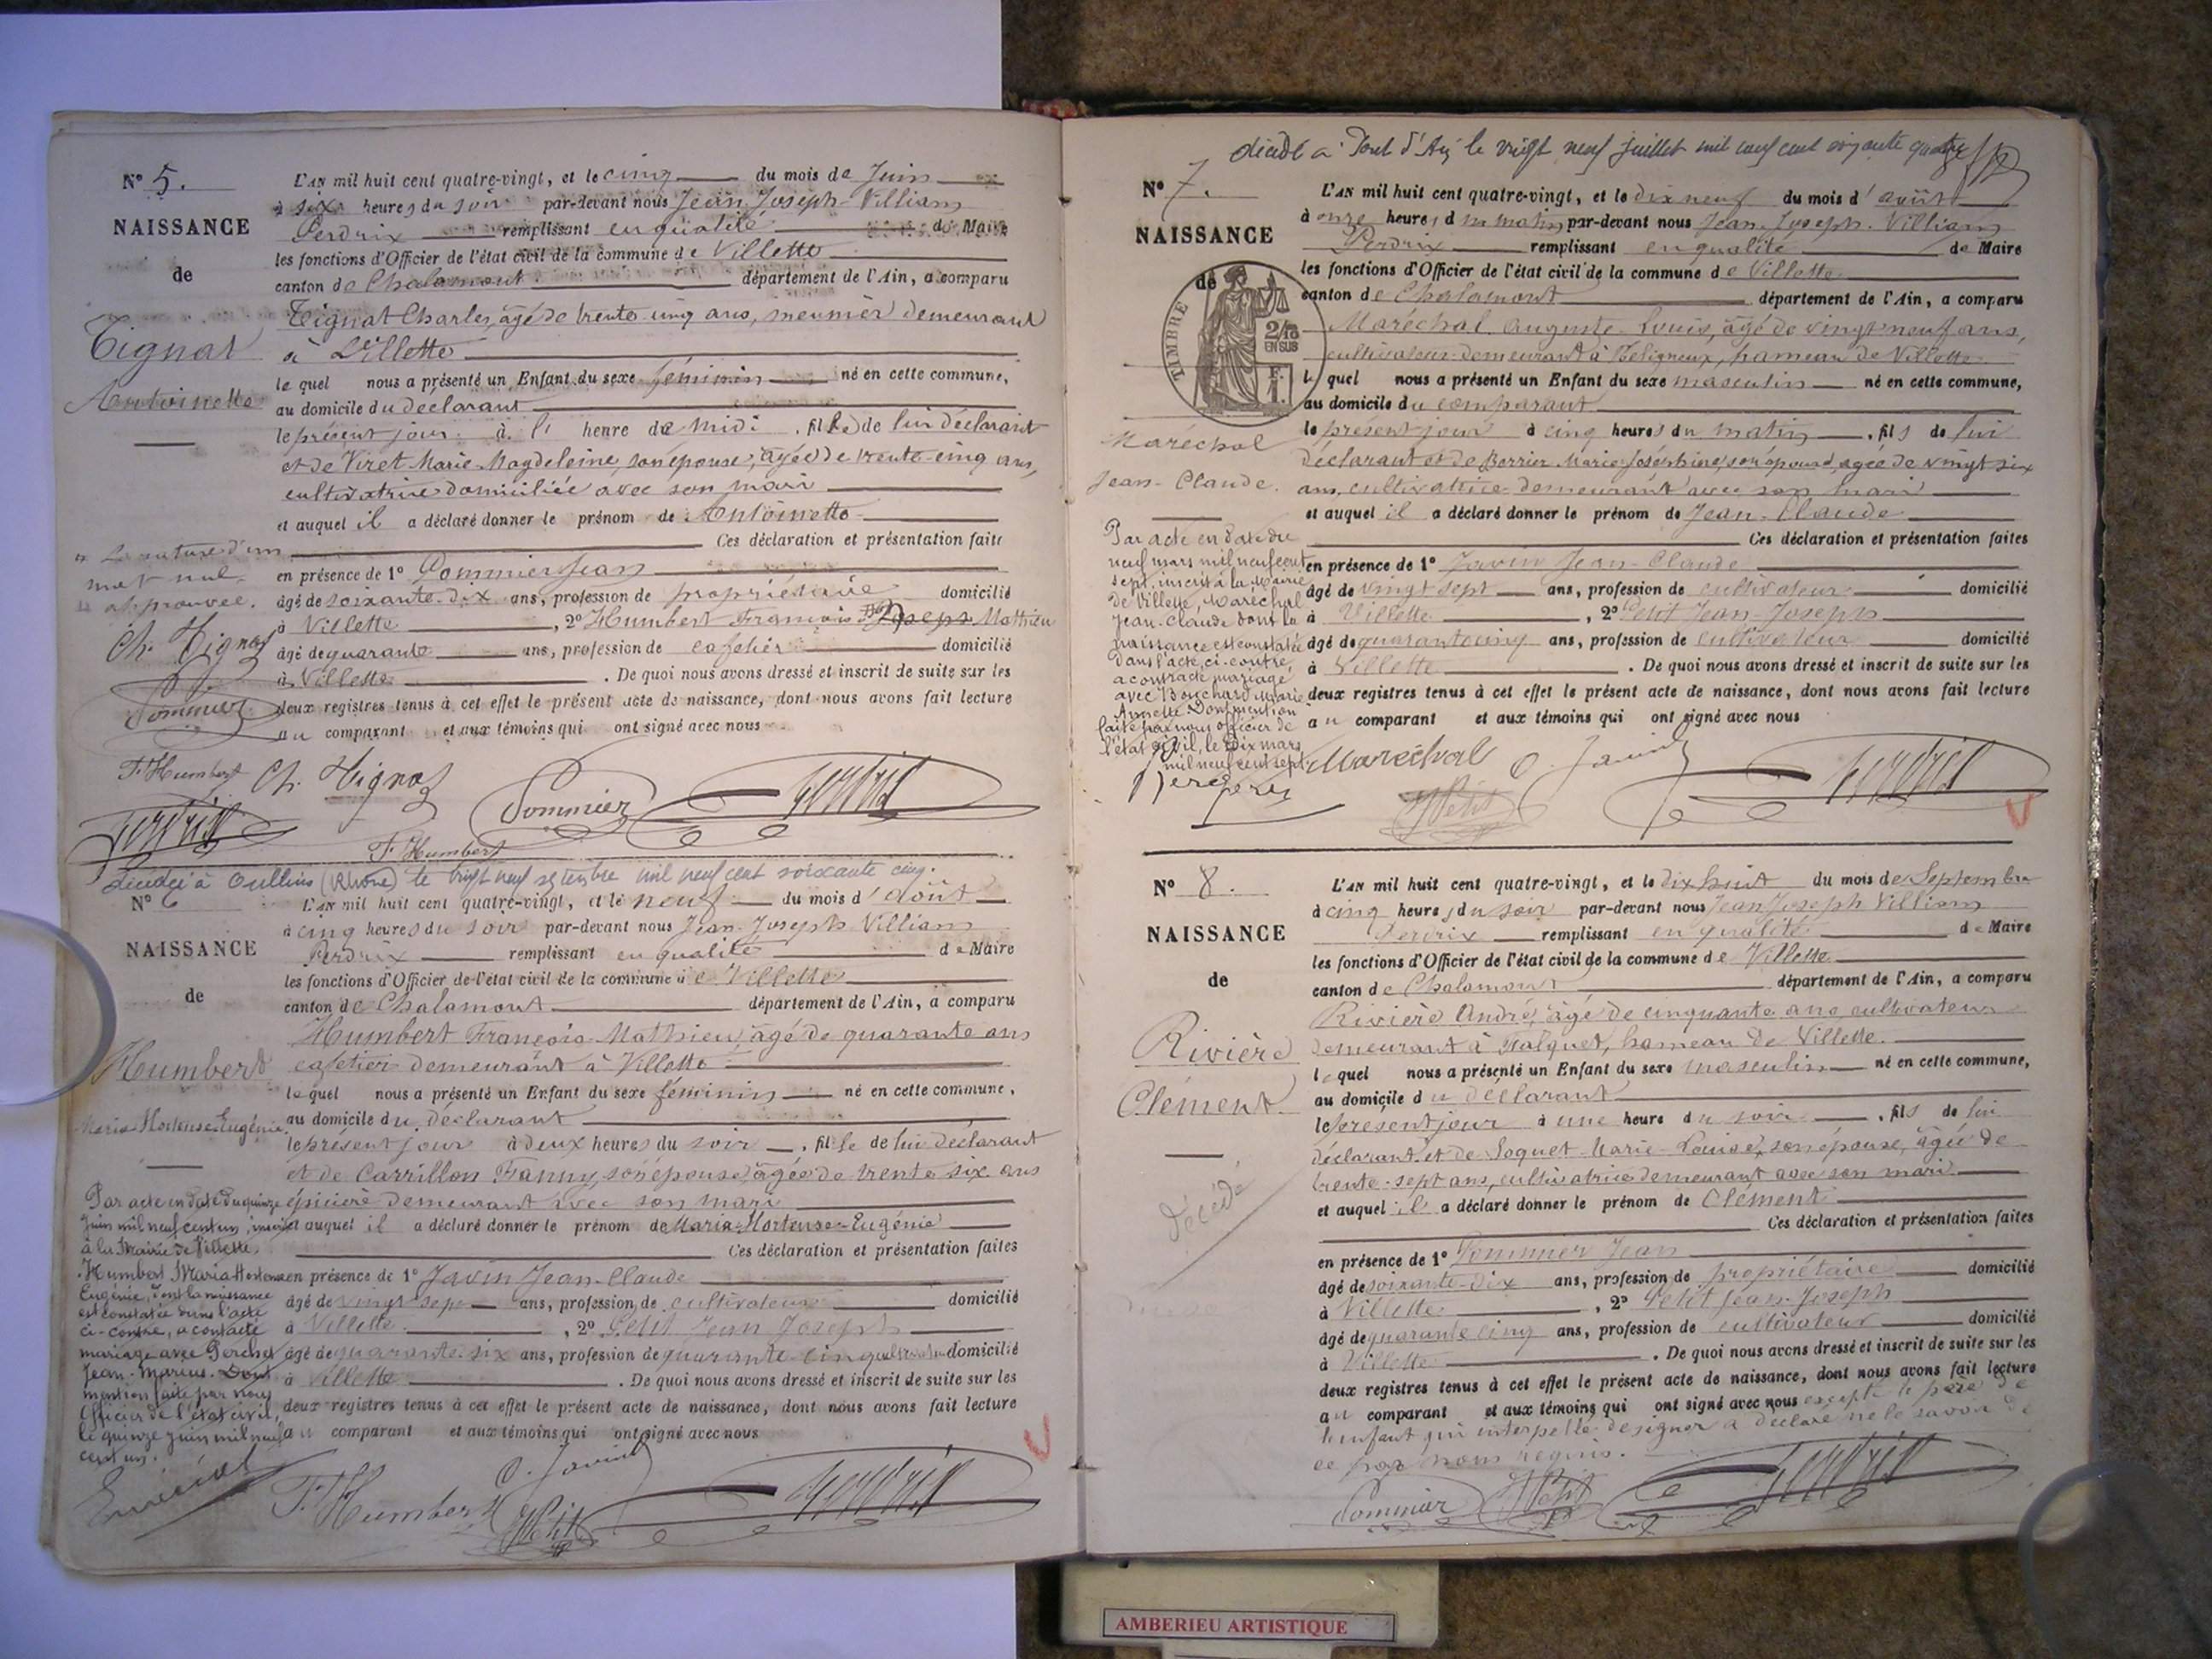 N° 5.
NAISSANCE
de
Tignat
Antoinette
L'AN mil huit cent quatre-vingt, et le cinq du mois de Juin
à six heures du soir par-devant nous Jean Joseph Villiam
Perdrix remplissant en qualité de Maire
les fonctions d'Officier de l'état civil de la commune de Villette
canton de Chalamont département de l'Ain, a comparu
Tignat Charles, âgé de trente cinq ans, meunier demeurant
à Villette
le quel nous a présenté un Enfant du sexe féminin né en cette commune,
au domicile du déclarant
le présent jour à l' heure de midi, fille de lui déclarant
et de Viret Marie Magdeleine, son épouse, âgée de trente cinq ans,
cultivatrice domiciliée avec son mari
et auquel il a déclaré donner le prénom de Antoinette
Ces déclaration et présentation faites
en présence de 1° Pommier Jean
âgé de soixante-dix ans, profession de propriétaire domicilié
à Villette, 2° Humbert François Joseph Mathieu
âgé de quarante ans, profession de cafetier domicilié
à Villette. De quoi nous avons dressé et inscrit de suite sur les
deux registres tenus à cet effet le présent acte de naissance, dont nous avons fait lecture
au comparant et aux témoins qui ont signé avec nous
La rature d'un
mot nul
approuvée.
Ch. Tignat
Pommier
F. Humbert Ch. Tignat Pommier Perdrix
Perdrix
F. Humbert
décédée à Oullins (Rhône) le vingt neuf septembre mil neuf cent soixante cinq.
N° 6
NAISSANCE
de
Humbert
Maria-Hortense-Eugénie
L'AN mil huit cent quatre-vingt, et le neuf du mois d'août
à cinq heures du soir par-devant nous Jean-Joseph Villiam
Perdrix remplissant en qualité de Maire
les fonctions d'Officier de l'état civil de la commune de Villette
canton de Chalamont département de l'Ain, a comparu
Humbert François Mathieu, âgé de quarante ans
cafetier demeurant à Villette
le quel nous a présenté un Enfant du sexe féminin né en cette commune,
au domicile du déclarant
le présent jour à deux heures du soir, fille de lui déclarant
et de Carrillon Fanny, son épouse, âgée de trente six ans
épicière demeurant avec son mari
et auquel il a déclaré donner le prénom de Maria-Hortense-Eugénie
Ces déclaration et présentation faites
en présence de 1° Javin Jean-Claude
âgé de vingt sept ans, profession de cultivateur domicilié
à Villette, 2° Petit Jean Joseph
âgé de quarante-six ans, profession de quarante-cinq cultivateur domicilié
à Villette. De quoi nous avons dressé et inscrit de suite sur les
deux registres tenus à cet effet le présent acte de naissance, dont nous avons fait lecture
au comparant et aux témoins qui ont signé avec nous
Par acte en date du quinze
Juin mil neuf cent un, inscrit
à la Mairie de Villette,
Humbert Maria Hortense
Eugénie, dont la naissance
est constatée dans l'acte
ci-contre, a contracté
mariage avec
Jean-Marius. Dont
mention faite par nous
Officier de l'état civil,
le quinze juin mil neuf
cent un.
F. Humbert C. Javin JPetit Perdrix
décédé à Pont d'Ain le vingt neuf juillet mil neuf cent cinquante quatre
N° 7.
NAISSANCE
de
TIMBRE
2/10
EN SUS
Maréchal
Jean-Claude.
L'AN mil huit cent quatre-vingt, et le dix neuf du mois d'août
à onze heures du matin par-devant nous Jean Joseph Villiam
Perdrix remplissant en qualité de Maire
les fonctions d'Officier de l'état civil de la commune de Villette
canton de Chalamont département de l'Ain, a comparu
Maréchal Auguste-Louis, âgé de vingt neuf ans,
cultivateur demeurant à Béligneux, hameau de Villette
le quel nous a présenté un Enfant du sexe masculin né en cette commune,
au domicile du comparant
le présent jour à cinq heures du matin, fils de lui
déclarant et de Berrier Marie-Joséphine, son épouse, âgée de vingt six
ans, cultivatrice demeurant avec son mari
et auquel il a déclaré donner le prénom de Jean-Claude
Ces déclaration et présentation faites
en présence de 1° Javin Jean-Claude
âgé de vingt sept ans, profession de cultivateur domicilié
à Villette, 2° Petit Jean-Joseph
âgé de quarante cinq ans, profession de cultivateur domicilié
à Villette. De quoi nous avons dressé et inscrit de suite sur les
deux registres tenus à cet effet le présent acte de naissance, dont nous avons fait lecture
au comparant et aux témoins qui ont signé avec nous
Par acte en date du
neuf mars mil neuf cent
sept, inscrit à la Mairie
de Villette, Maréchal
Jean-Claude dont la
naissance est constatée
dans l'acte ci-contre,
a contracté mariage
avec Bouchard Marie
Annette. Dont mention
faite par nous officier de
l'état civil, le dix mars
mil neuf cent sept.
Maréchal C. Javin
JPetit Perdrix
N° 8.
NAISSANCE
de
Rivière
Clément.
décédé
L'AN mil huit cent quatre-vingt, et le dix huit du mois de Septembre
à cinq heures du soir par-devant nous Jean Joseph Villiam
Perdrix remplissant en qualité de Maire
les fonctions d'Officier de l'état civil de la commune de Villette
canton de Chalamont département de l'Ain, a comparu
Rivière André, âgé de cinquante ans cultivateur
demeurant à hameau de Villette.
le quel nous a présenté un Enfant du sexe masculin né en cette commune,
au domicile du déclarant
le présent jour à une heure du soir, fils de lui
déclarant et de Poquet Marie-Louise, son épouse, âgée de
trente-sept ans, cultivatrice demeurant avec son mari
et auquel il a déclaré donner le prénom de Clément
Ces déclaration et présentation faites
en présence de 1° Pommier Jean
âgé de soixante-dix ans, profession de propriétaire domicilié
à Villette, 2° Petit Jean-Joseph
âgé de quarante cinq ans, profession de cultivateur domicilié
à Villette. De quoi nous avons dressé et inscrit de suite sur les
deux registres tenus à cet effet le présent acte de naissance, dont nous avons fait lecture
au comparant et aux témoins qui ont signé avec nous excepté le père de
l'enfant qui interpellé de signer a déclaré ne le savoir de
ce par nous requis.
Pommier JPetit Perdrix
AMBERIEU ARTISTIQUE